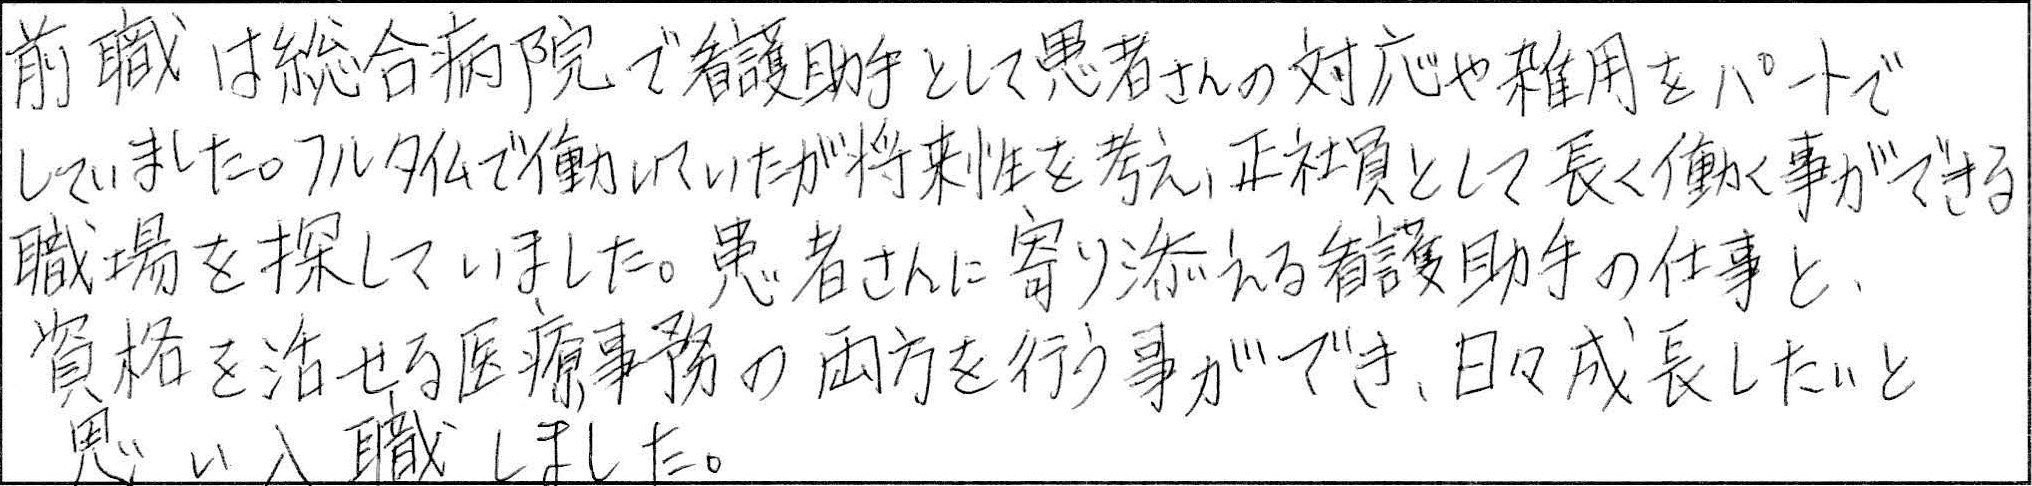 前職は総合病院で看護助手として患者さんの対応や雑用をパートで
していました。フルタイムで働いていたが将来性を考え、正社員として長く働く事ができる
職場を探していました。患者さんに寄り添える看護助手の仕事と、
資格を活せる医療事務の両方を行う事ができ、日々成長したいと
思い入職しました。